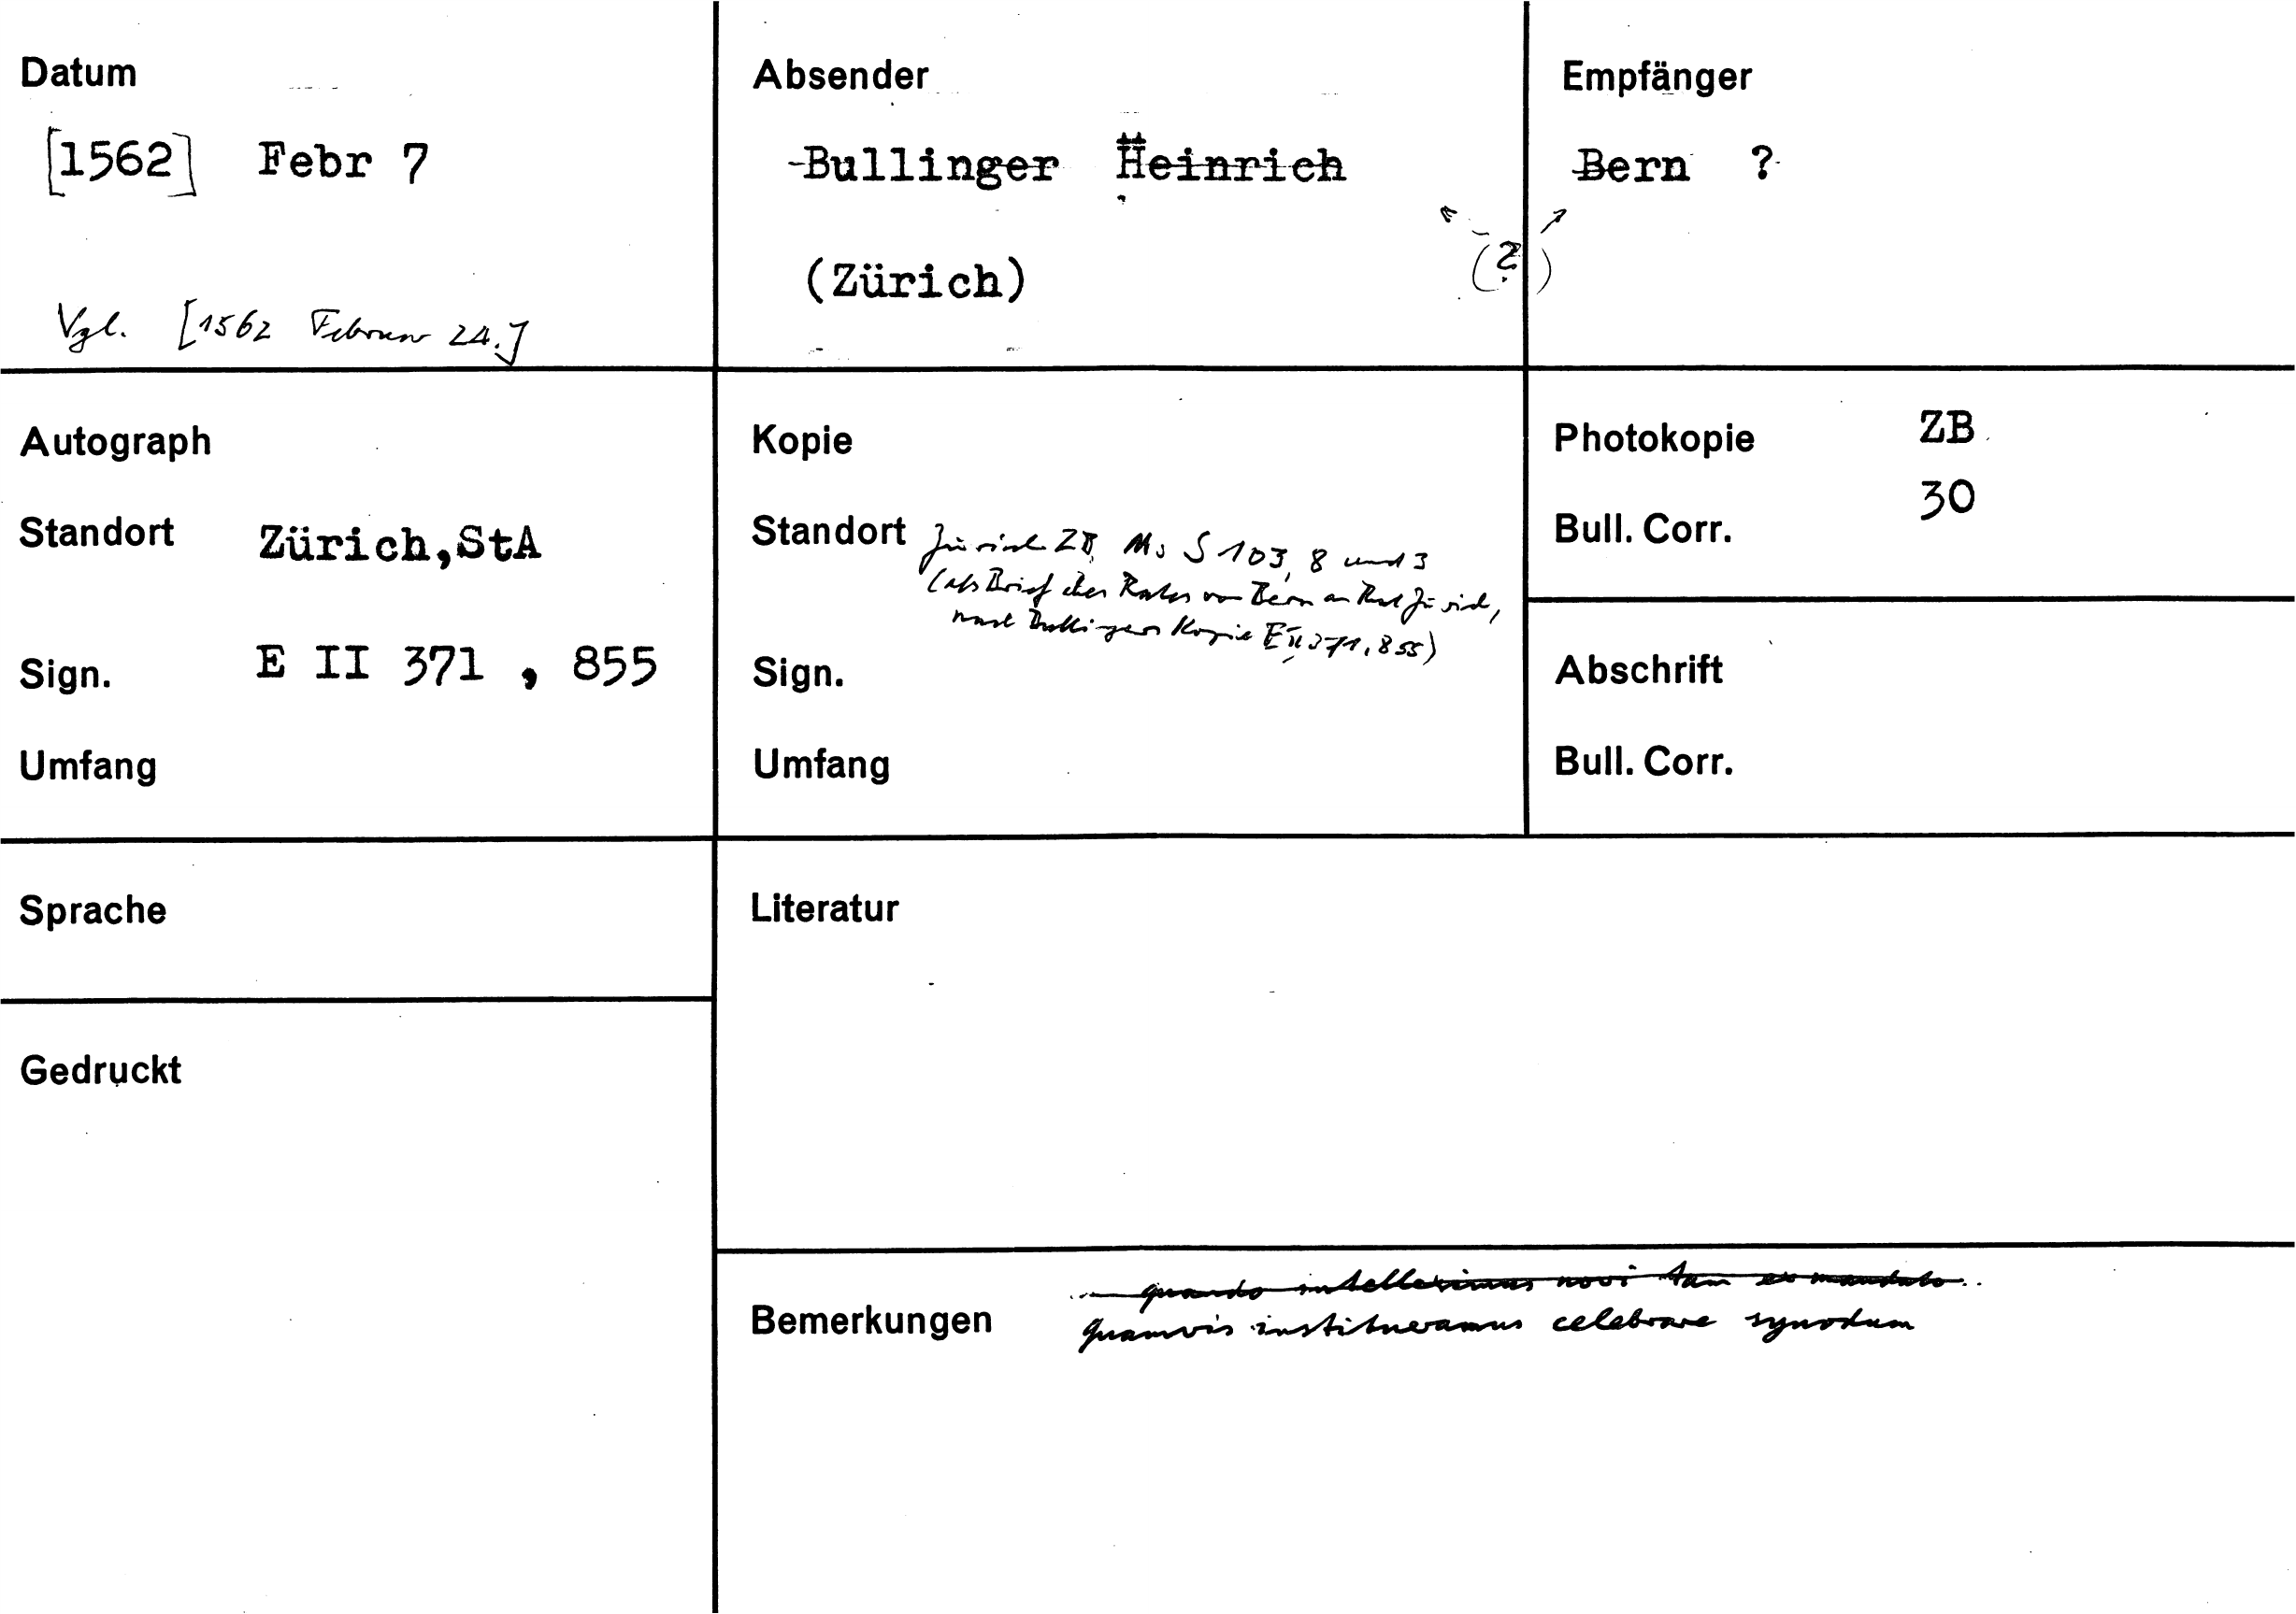 Datum
[1562] Febr 7
Vgl. [1562 Februar 24.]
Absender
Bullinger Heinrich
(Zürich)
(?)
Empfänger
Bern ?
Autograph
Standort Zürich,StA
Sign. E II 371 , 855
Umfang
Kopie
Standort Zürich ZB, Ms S 103, 8 und 3
(als Brief des Rates von Bern an Rat Zürich,
nach Bullingers Kopie E II 371, 855)
Sign.
Umfang
Photokopie ZB
Bull. Corr. 30
Abschrift
Bull. Corr.
Sprache
Gedruckt
Literatur
Bemerkungen
... quando intelleximus novi tam ex mandato ..
quamvis institueramus celebrare synodum